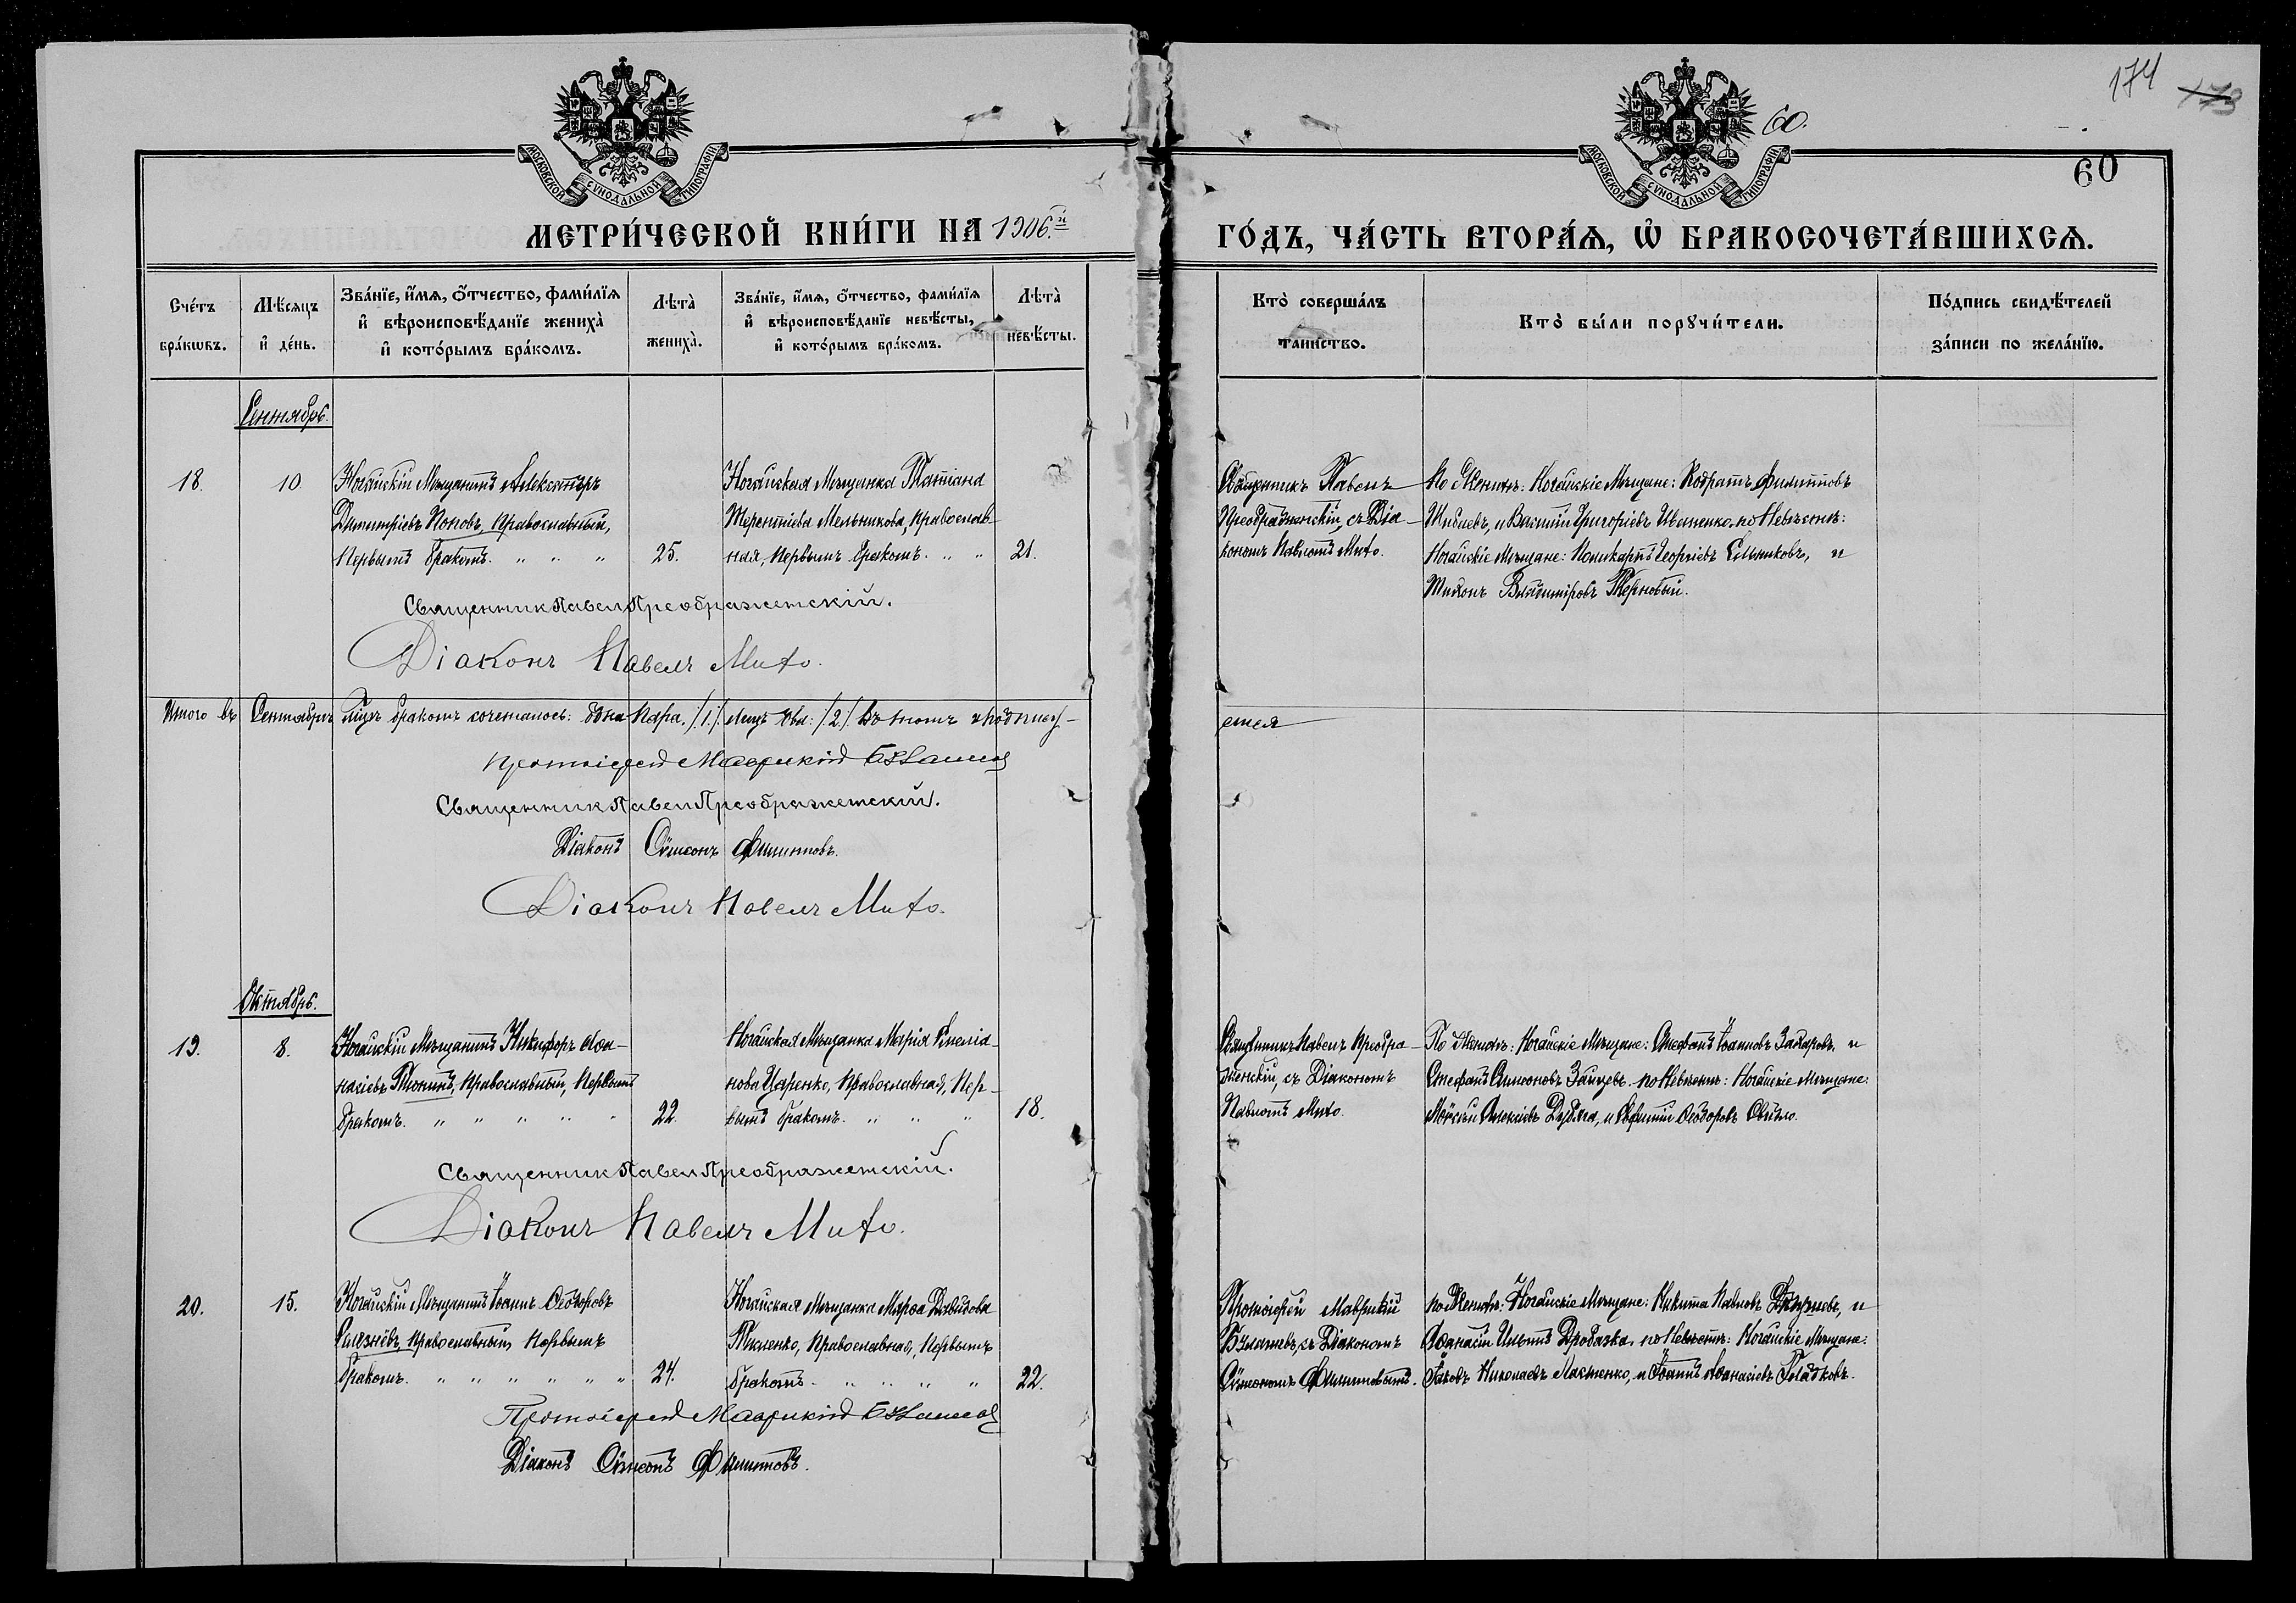 174 173
60.
60
МОСКОВСКОЙ СѴНОДАЛЬНОЙ ТИПОГРАФІИ
МОСКОВСКОЙ СѴНОДАЛЬНОЙ ТИПОГРАФІИ
МЕТРИ́ЧЕСКОЙ КНИ́ГИ НА 1906.й
ГО́ДЪ, ЧА́СТЬ ВТОРА́Ѧ, Ѡ БРАКОСОЧЕТА́ВШИХСѦ.
Сче́тъ бра́кѡвъ.
Мѣ́сяцъ и де́нь.
Зва́нїе, и́мѧ, о́тчество, фами́лїѧ и вѣроисповѣ́данїе жениха̀ и кото́рымъ бра́комъ.
Лѣта̀ жениха̀.
Зва́нїе, и́мѧ, о́тчество, фами́лїѧ и вѣроисповѣ́данїе невѣ́сты, и кото́рымъ бра́комъ.
Лѣта̀ невѣ́сты.
Кто̀ соверша́лъ таинство.
Кто̀ бы́ли порꙋчи́тели.
По́дпись свидѣ́телей за́писи по жела́нїю.
Сентябрь.
18.
10
Ногайскій Мѣщанинъ Александръ
Димитріевъ Поповъ, православный,
первымъ бракомъ. " " "
25.
Ногайская Мѣщанка Татіана
Терентіева Мельникова, православ-
ная, первымъ бракомъ. " "
21.
Священникъ Павелъ
Преображенскій, съ Діа-
кономъ Павломъ Мито.
По Женихѣ: Ногайскіе Мѣщане: Кодратъ Филипповъ
и Василій Григорьевъ Иваненко. по Невѣстѣ:
Ногайскіе Мѣщане: Поликарпъ Георгіевъ и
Тихонъ Владиміровъ Терновый.
Священник Павел Преображенскій.
Діаконъ Павелъ Мито.
Итого въ Сентябрѣ мѣсяцѣ бракомъ сочеталось: одна пара. /1/. лицъ два: /2/. въ томъ и подпису-
ется
Протоіерей Маврикій
Священник Павел Преображенскій.
Діаконъ Сѵмеонъ Филипповъ.
Діаконъ Павелъ Мито.
Октябрь.
19.
8.
Ногайскій Мѣщанинъ Никифоръ Аѳа-
насіевъ Тюнинъ, православный, первымъ
бракомъ. " " " " "
22.
Ногайская Мѣщанка Марія Емеліа-
нова Царенко, православная, пер-
вымъ бракомъ. " " "
18.
Священникъ Павелъ Преобра-
женскій, съ Діакономъ
Павломъ Мито.
По Женихѣ: Ногайскіе Мѣщане: Стефанъ Іоанновъ Захаровъ, и
Стефанъ Сѵмеоновъ Зайцевъ. по Невѣстѣ: Ногайскіе Мѣщане:
Моѵсей Алексіевъ и Евфимій Ѳеодоровъ
Священник Павел Преображенскій.
Діаконъ Павелъ Мито.
20.
15.
Ногайскій Мѣщанинъ Іоаннъ Ѳеодоровъ
Селезневъ, православный, первымъ
бракомъ. " " " " " "
24.
Ногайская Мѣщанка Марѳа Давидова
православная, первымъ
бракомъ. " " " "
22.
Протоіерей Маврикій
съ Діакономъ
Сѵмеономъ Филипповымъ.
по Женихѣ: Ногайскіе Мѣщане: Никита Павловъ и
Аѳанасій Ильинъ Дробязка. по Невѣстѣ: Ногайскіе Мѣщане:
Іаковъ Николаевъ Ластенко, и Іоаннъ Аѳанасіевъ Гладковъ.
Протоіерей Маврикій
Діаконъ Сѵмеонъ Филипповъ.